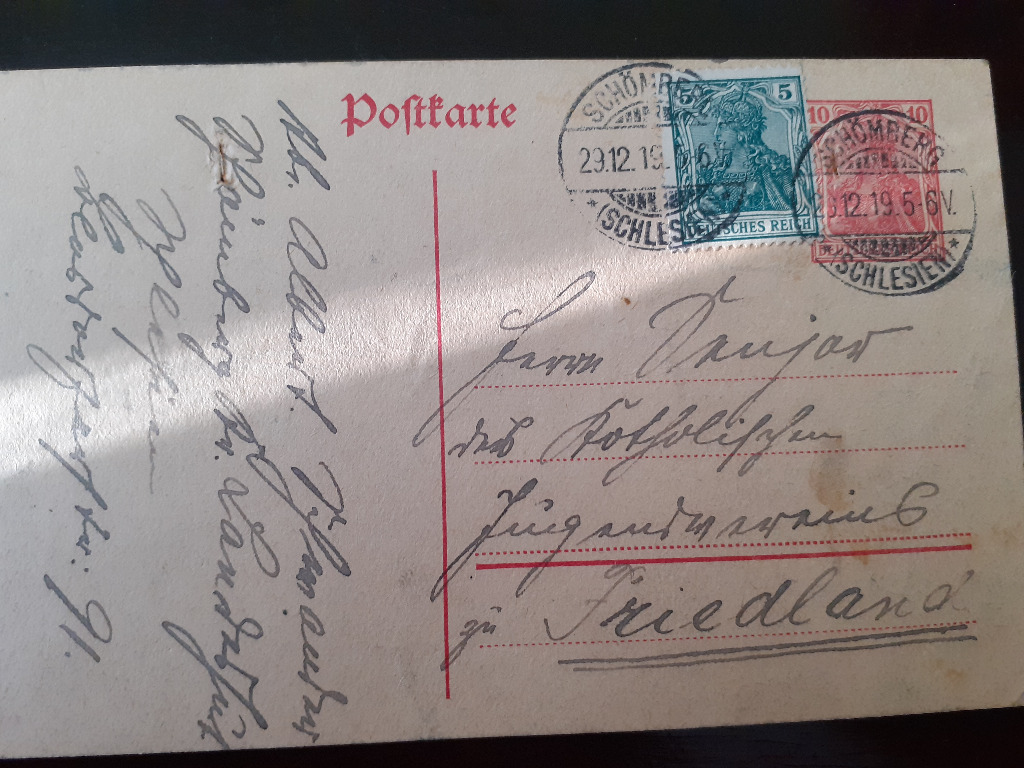 Poſtkarte
SCHÖMBERG
29.12.19. 5-6V.
*(SCHLESIEN)*
5 5
DEUTSCHES REICH
10 10
SCHÖMBERG
29.12.19. 5-6V.
*(SCHLESIEN)*
Herrn Senior
des Katholischen
Jugendvereins
zu Friedland
Albert
Schömberg Kr. Landeshut
Schlesien
91.